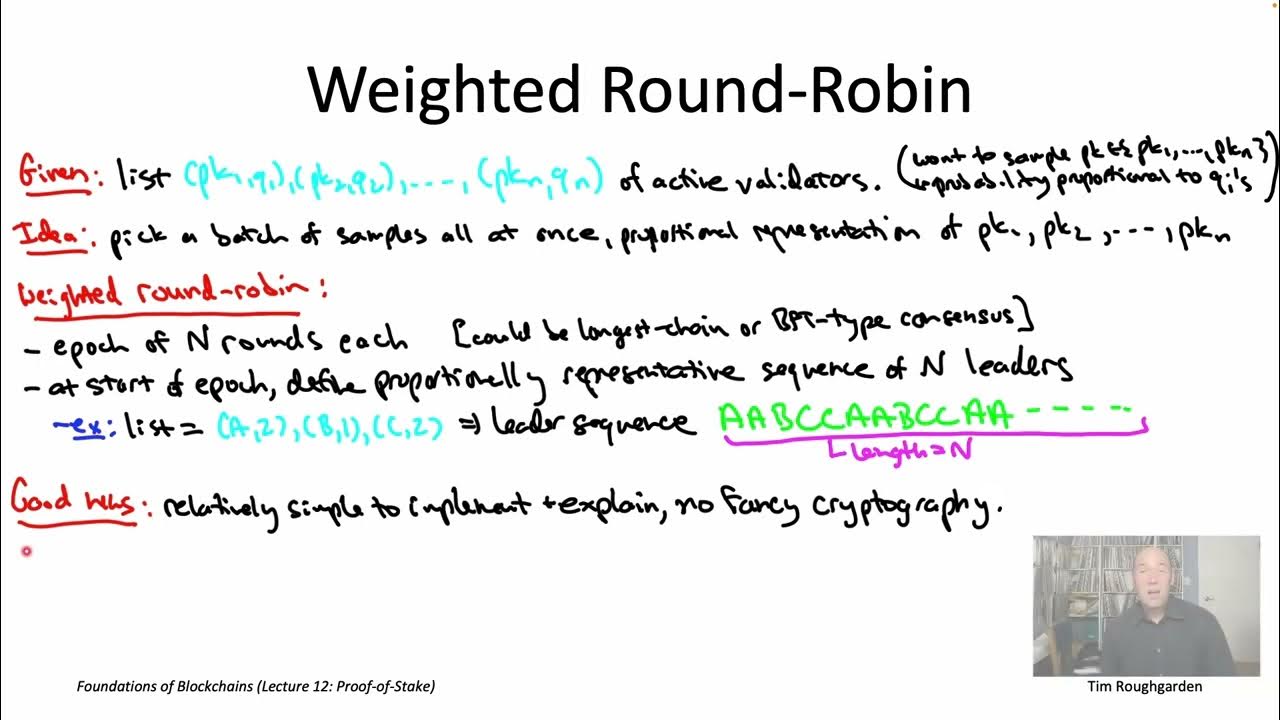 Weighted Round-Robin
Given: list (pk₁,q₁),(pk₂,q₂),...,(pkₙ,qₙ) of active validators. (want to sample pk ∈ {pk₁,...,pkₙ}
w/probability proportional to qᵢ's)
Idea: pick a batch of samples all at once, proportional representation of pk₁, pk₂, ..., pkₙ
Weighted round-robin:
- epoch of N rounds each [could be longest-chain or BFT-type consensus]
- at start of epoch, define proportionally representative sequence of N leaders
- ex: list = (A,2),(B,1),(C,2) ⇒ leader sequence AABCCAABCCAA-----
length=N
Good news: relatively simple to implement + explain, no fancy cryptography.
Foundations of Blockchains (Lecture 12: Proof-of-Stake)
Tim Roughgarden